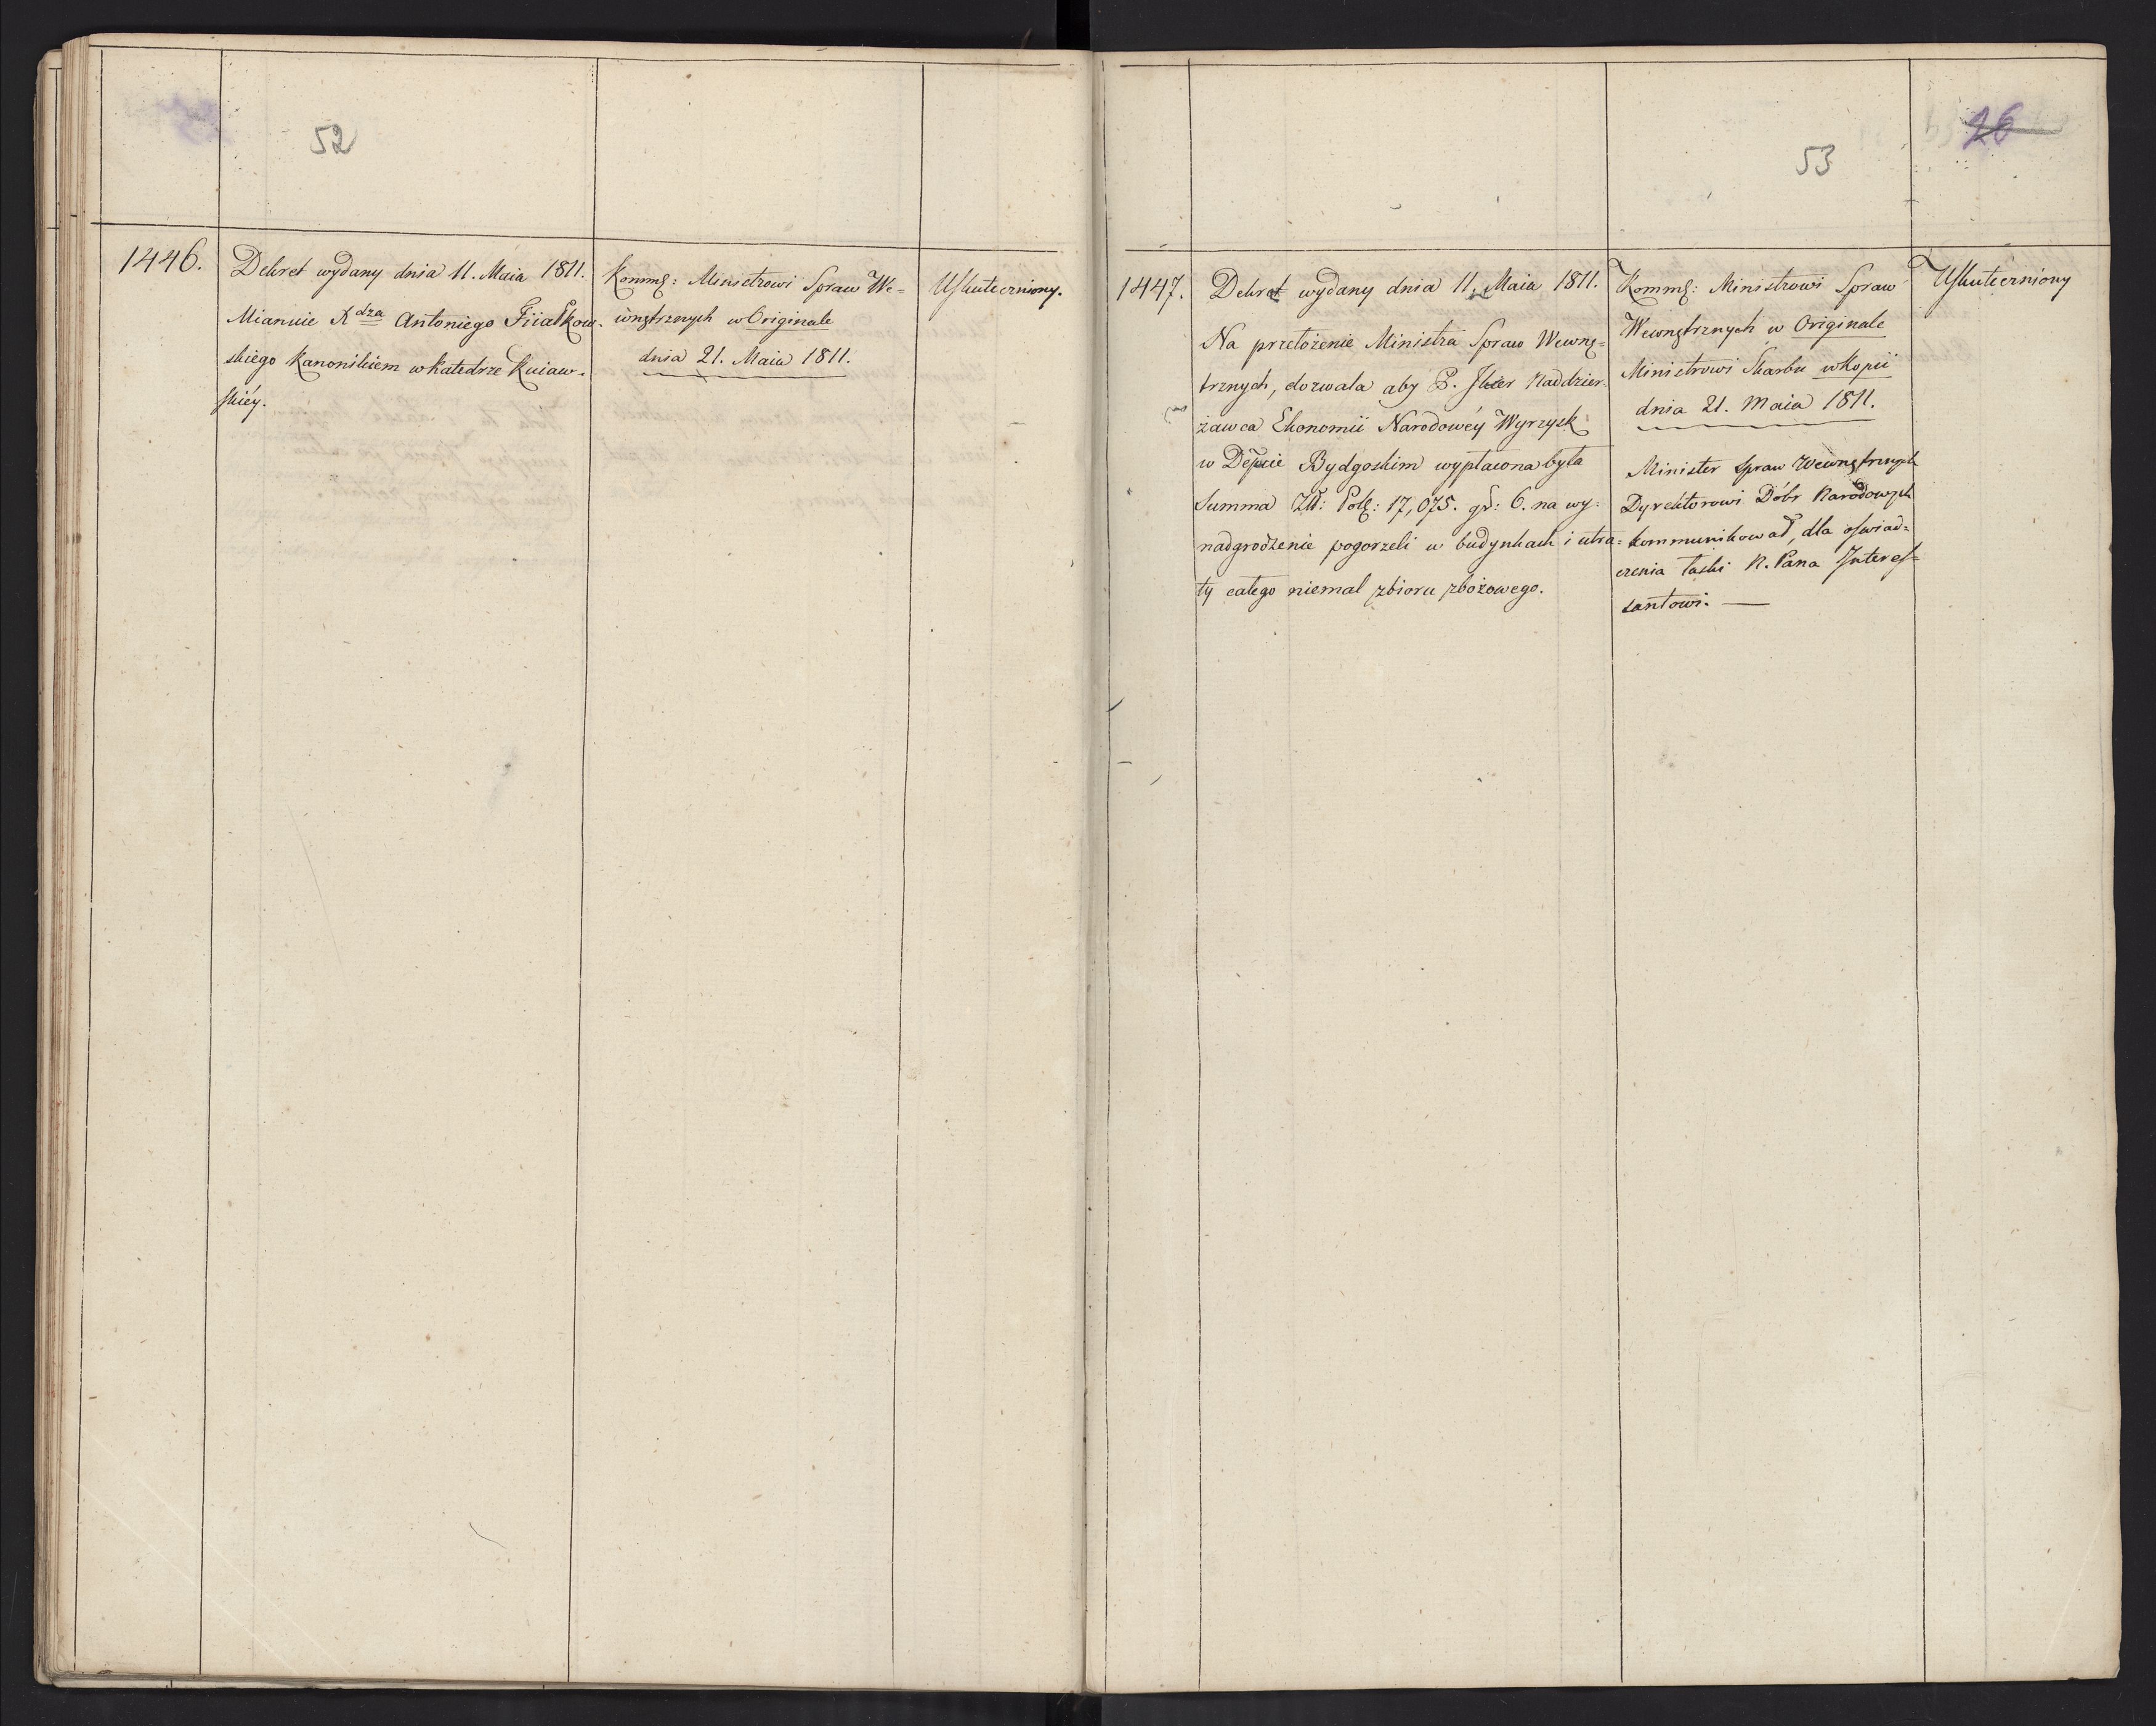 52
1446.
Dekret wydany dnia 11. Maia 1811.
Mianuie Xdza Antoniego Fiiałkow-
skiego Kanonikiem w Katedrze Kuiaw-
skiéy.
Komm: Ministrowi Spraw We=
wnętrznych w Originale
dnia 21. Maia 1811.
Uskuteczniony.
26
53
1447.
Dekret wydany dnia 11. Maia 1811.
Na przełożenie Ministra Spraw Wewnę=
trznych, dozwala aby P. Naddzier-
żawca Ekonomii Narodowéy Wyrzysk
w Depcie Bydgoskim wypłacona była
Summa Zł: Pol: 17,075. gr: 6. na wy=
nadgrodzenie pogorzeli w budynkach i utra=
ty całego niemal zbioru zbożowego.
Komm: Ministrowi Spraw
Wewnętrznych w Originale
Ministrowi Skarbu w Kopii
dnia 21. Maia 1811.
Minister Spraw Wewnętrznych
Dyrektorowi Dóbr Narodowych
kommunikował, dla oświad=
czenia łaski N. Pana Interes=
santowi. —
Uskuteczniony